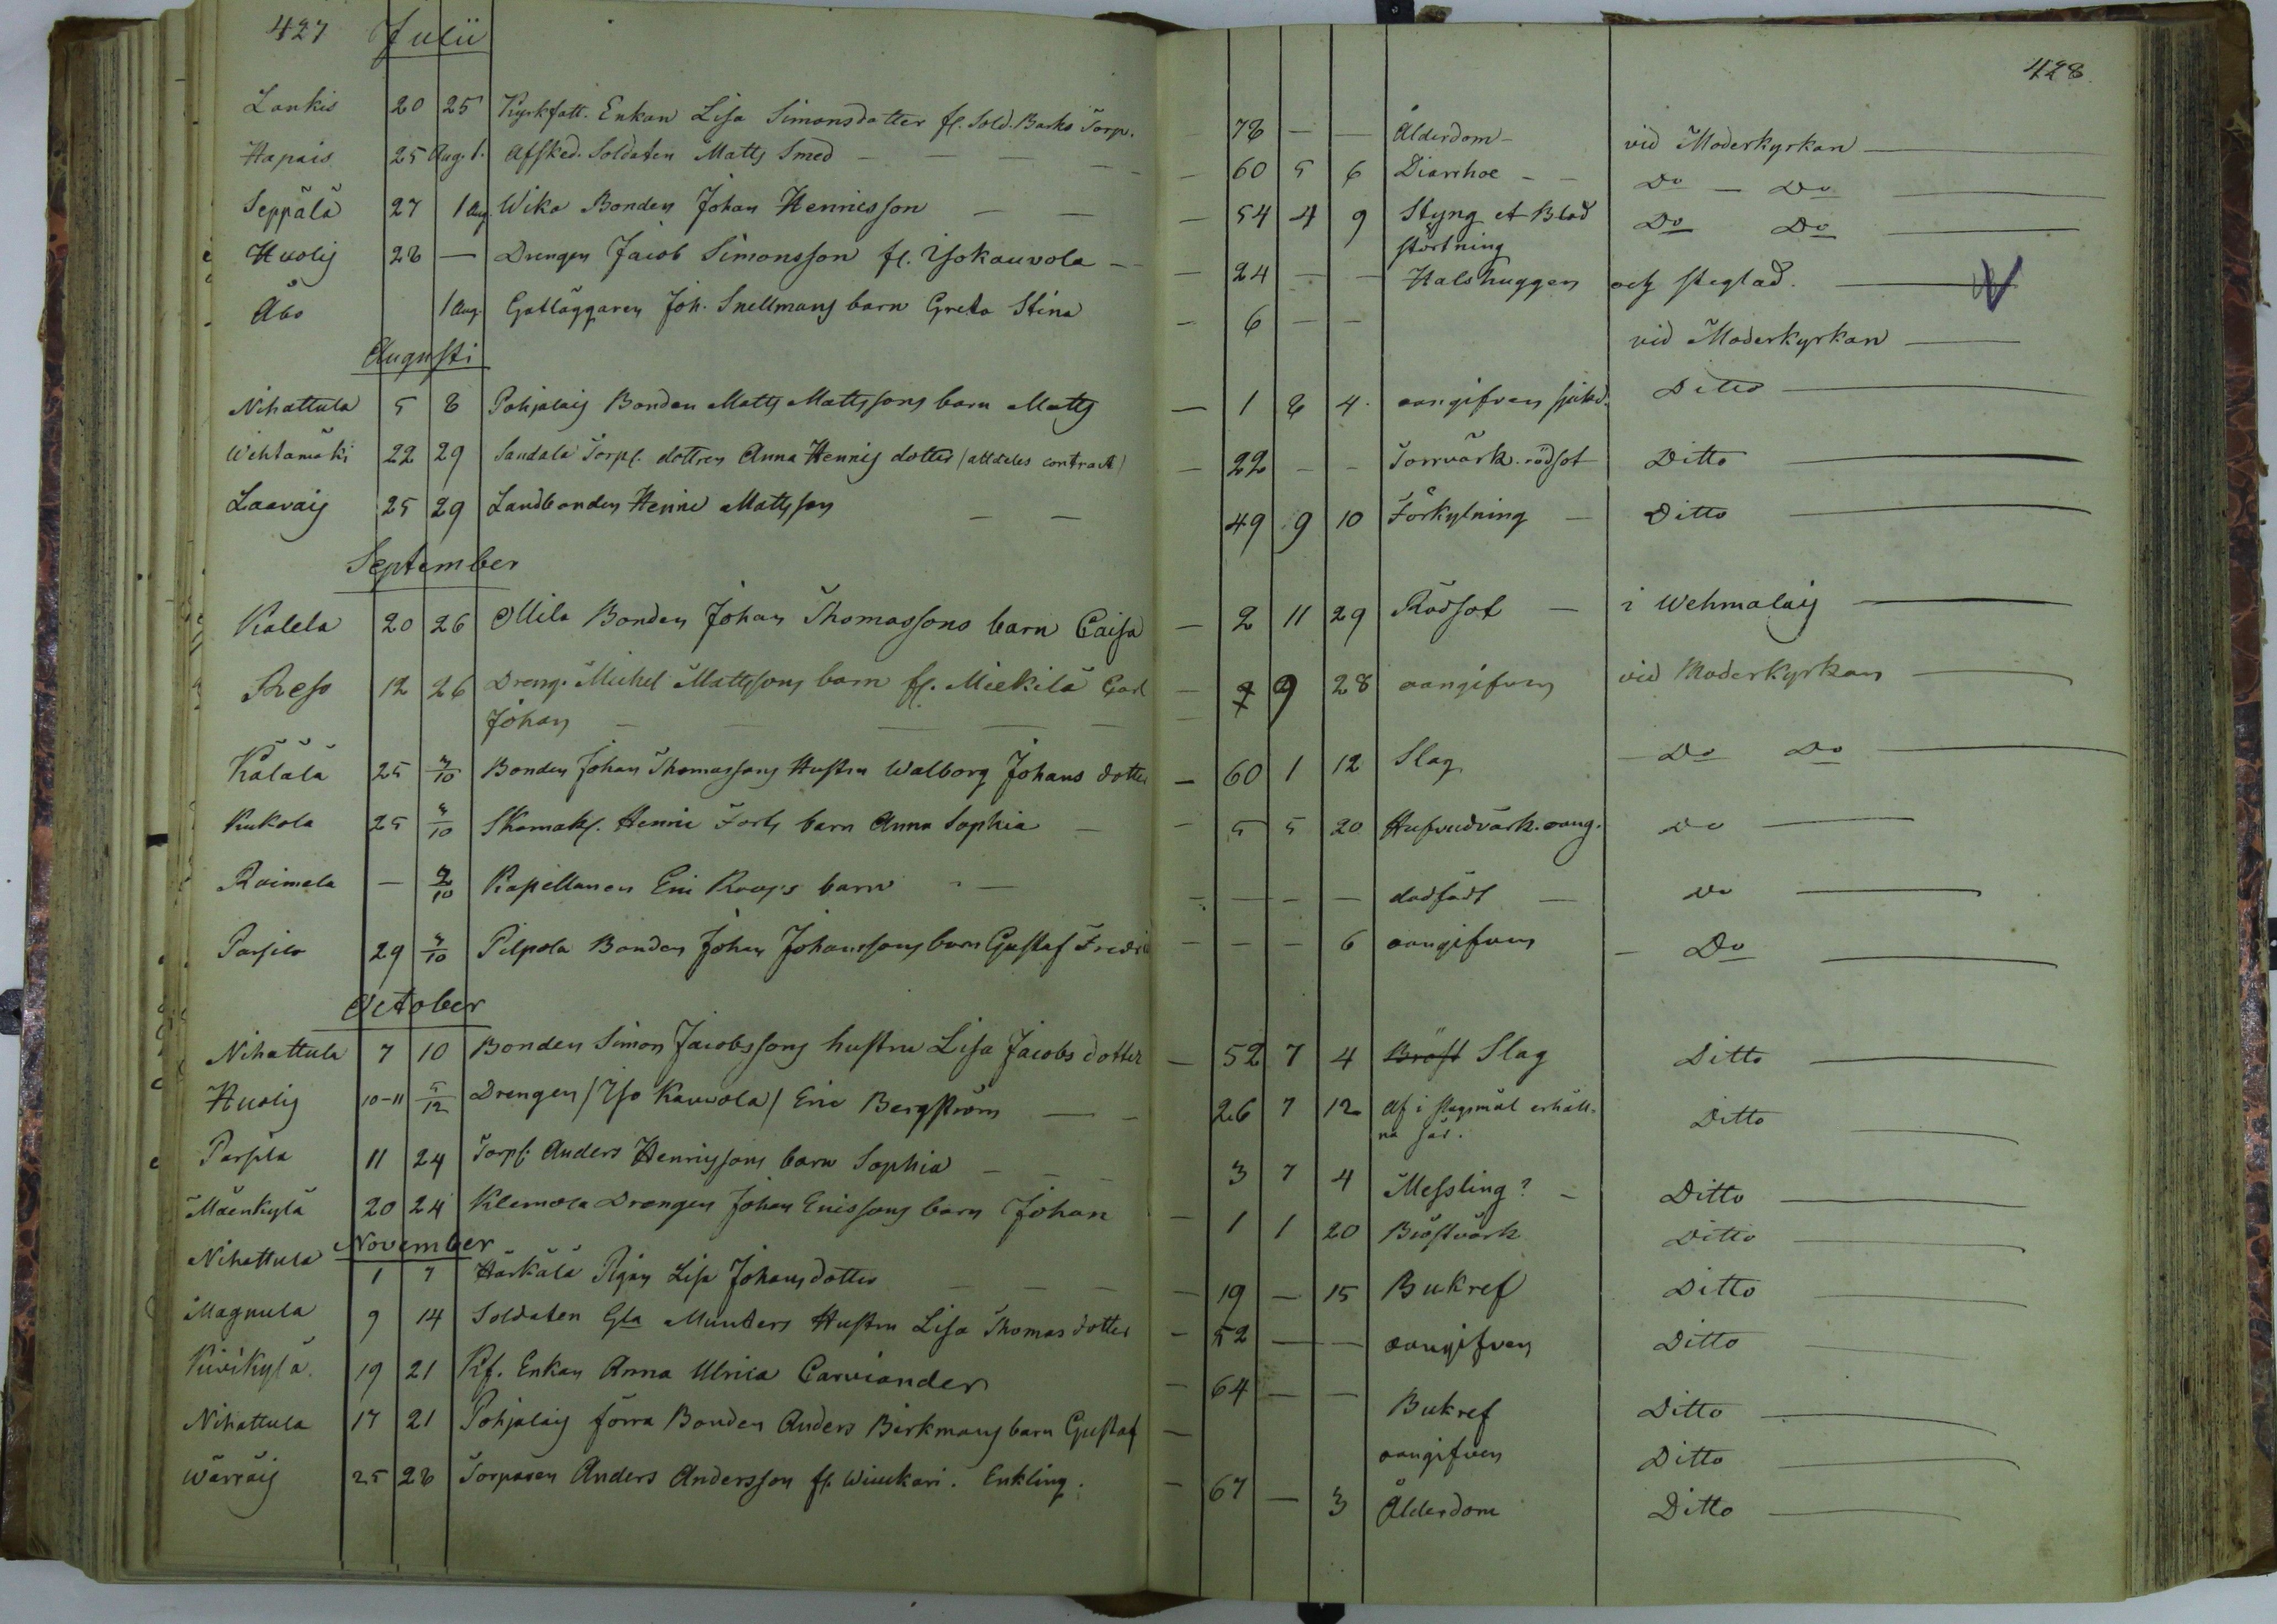 427 Julii
428.
Lankis 20 25 Kyrkfatt. Enkan Lisa Simonsdotter fl. Sold. Barks Torp. — 78 — — Ålderdom — vid Moderkyrkan —
Hapais 25 Aug. 1. Afsked. Soldaten Matts Smed — 60 5 6 Diarrhoe — Do — Do —
Seppälä 27 1 Aug. Wika Bonden Johan Henricsson — 54 4 9 Styng et Blod Do Do —
störtning
Huolis 28 — Drengen Jacob Simonsson fl. Isokauvola — 24 — — Halshuggen och steglad. —
Åbo 1 Aug. Gatläggaren Joh. Snellmans barn Greta Stina — 6 — — vid Moderkyrkan —
Augusti
Nihattula 5 8 Pohjalais Bonden Matts Mattssons barn Matts — 1 8 4 oangifven sjukd. Ditto —
Wehtamäki 22 29 Sandala Torpf. dottren Anna Henrics dotter (alldeles contract) — 22 — — Torrvärk. rödsot Ditto —
Laavais 25 29 Landbonden Henric Mattsson — 49 9 10 Förkylning — Ditto —
September
Kalela 20 26 Ollila Bonden Johan Thomassons barn Caisa — 2 11 29 Rödsot — i Wehmalais —
12 26 Dreng. Michel Mattssons barn fl. Mickilä Carl — 9 28 oangifven vid Moderkyrkan —
Johan —
Källälä 25 3/10 Bonden Johan Thomassons Hustru Walborg Johans dotter — 60 1 12 Slag — Do Do —
Kukola 25 3/10 Skomak. Henric Forts barn Anna Sophia — 5 5 20 Hufvudvärk. oang. Do —
Raimela — 3/10 Kapellanen Eric Roos's barn — — — — dödfödt — Do —
Parsila 29 3/10 Pilpola Bonden Johan Johanssons barn Gustaf Fredric — — — 6 oangifven — Do —
October
Nihattula 7 10 Bonden Simon Jacobssons hustru Lisa Jacobs dotter — 52 7 4 Bröst Slag Ditto —
Huolis 10-11 5/12 Drengen (Iso Kauvola) Eric Bergström — 26 7 12 Af i slagsmål erhåll- Ditto —
na sår.
Parsila 11 24 Torpf. Anders Henricssons barn Sophia — 3 7 4 Messling? — Ditto —
Mäenkylä 20 24 Klemola Drengen Johan Ericssons barn Johan — 1 1 20 Bröstvärk Ditto —
November
Nihattula 1 7 Härkälä Pigan Lisa Johans dotter — 19 — 15 Bukref Ditto —
Magnula 9 14 Soldaten Gla Munters Hustru Lisa Thomas dotter — 52 — — oangifven Ditto
Kivikylä. 19 21 Kf. Enkan Anna Ulrica Carviander — 64 — — Bukref Ditto —
Nihattula 17 21 Pohjalais förra Bonden Anders Birkmans barn Gustaf — oangifven Ditto —
Wärräis 25 28 Torparen Anders Andersson fl. Wiinikari. Enkling. — 67 — 3 Ålderdom Ditto —